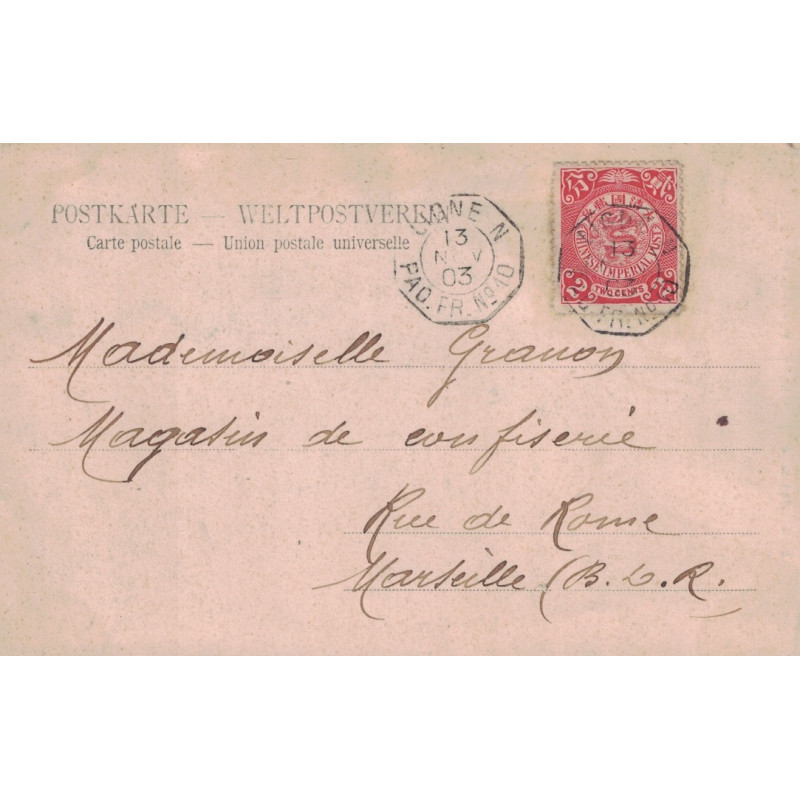 POSTKARTE — WELTPOSTVEREIN
Carte postale — Union postale universelle
LIGNE N
13
NOV
03
PAQ. FR. Nº 10
CHINESE IMPERIAL POST
2 TWO CENTS
13
FR. Nº 10
Mademoiselle Granon
Magasin de confiserie
Rue de Rome
Marseille (B. d. R.